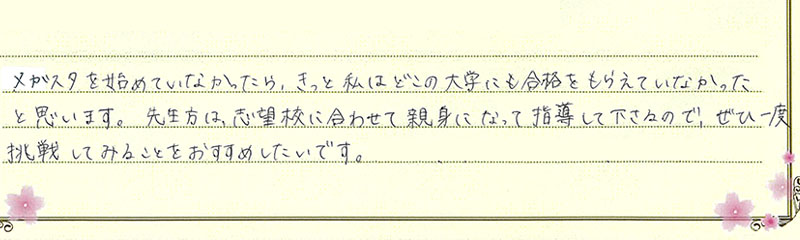 メガスタを始めていなかったら、きっと私はどこの大学にも合格をもらえていなかった
と思います。先生方は、志望校に合わせて親身になって指導して下さるので、ぜひ一度
挑戦してみることをおすすめしたいです。